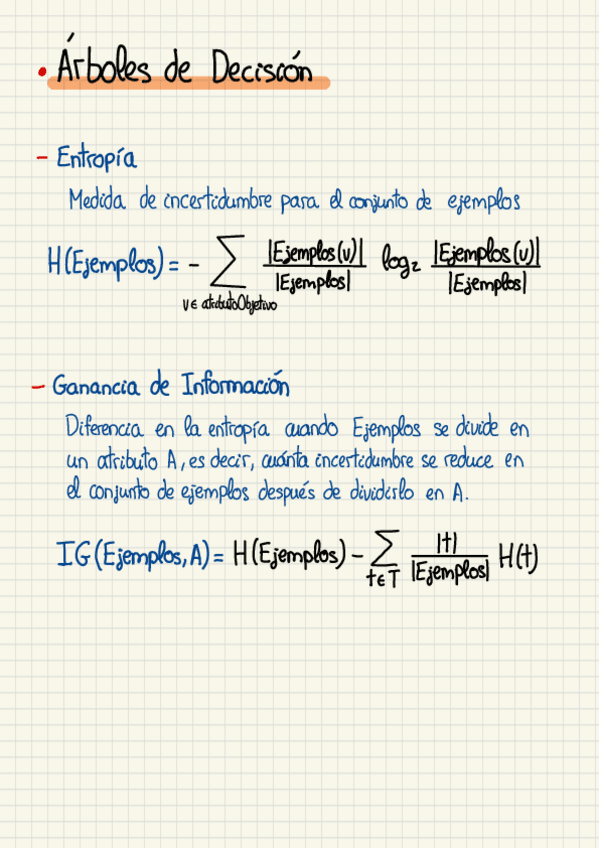 • Árboles de Decisión
- Entropía
Medida de incertidumbre para el conjunto de ejemplos
H(Ejemplos) = - ∑ v ∈ atributoObjetivo |Ejemplos(v)| / |Ejemplos| log₂ |Ejemplos(v)| / |Ejemplos|
- Ganancia de Información
Diferencia en la entropía cuando Ejemplos se divide en
un atributo A, es decir, cuánta incertidumbre se reduce en
el conjunto de ejemplos después de dividirlo en A.
IG(Ejemplos, A) = H(Ejemplos) - ∑ t ∈ T |t| / |Ejemplos| H(t)